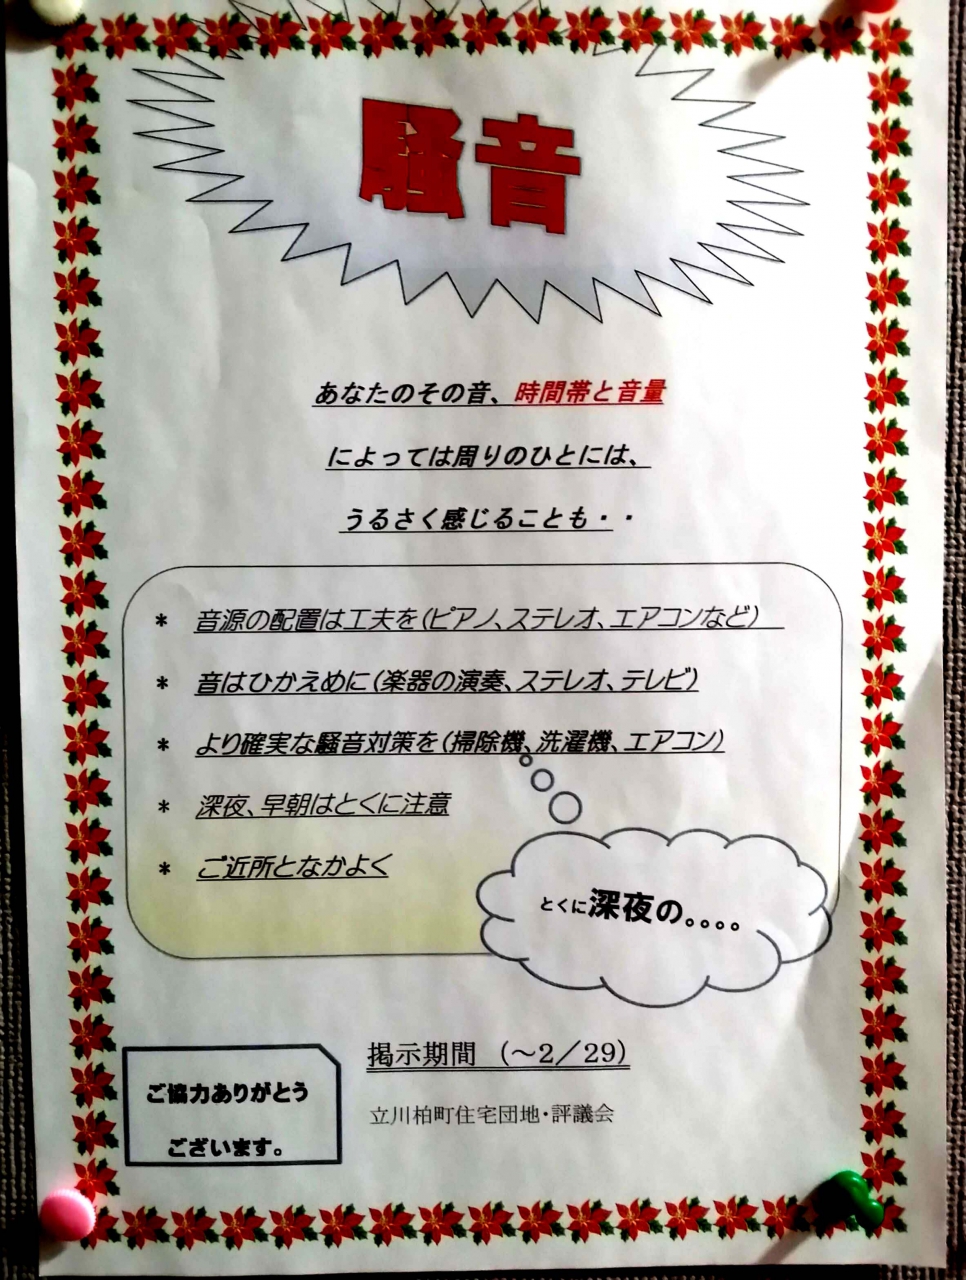 騒音
あなたのその音、時間帯と音量
によっては周りのひとには、
うるさく感じることも・・
* 音源の配置は工夫を(ピアノ、ステレオ、エアコンなど)
* 音はひかえめに(楽器の演奏、ステレオ、テレビ)
* より確実な騒音対策を(掃除機、洗濯機、エアコン)
* 深夜、早朝はとくに注意
* ご近所となかよく
とくに深夜の。。。。
掲示期間 (～2／29)
立川柏町住宅団地・評議会
ご協力ありがとう
ございます。